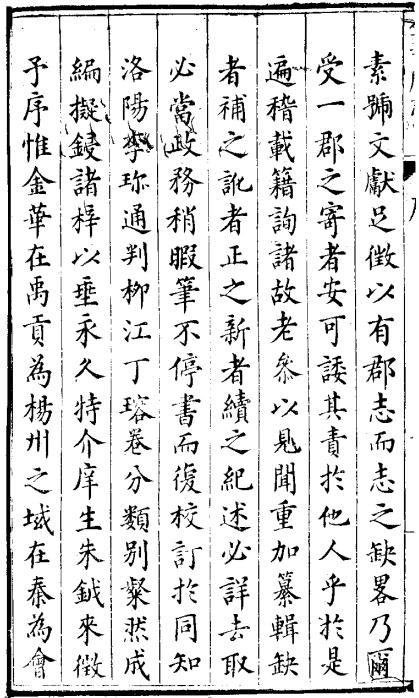 素號文獻足徵以有郡志而志之缺畧乃爾
受一郡之寄者安可諉其責於他人乎於是
遍稽載籍詢諸故老叅以見聞重加纂輯缺
者補之訛者正之新者續之紀述必詳去取
必當政務稍暇筆不停書而復校訂於同知
洛陽李珎通判柳江丁瑢卷分類別粲然成
編擬鋟諸梓以垂永久特介庠生朱鉞來徵
予序惟金華在禹貢為楊州之域在秦為會